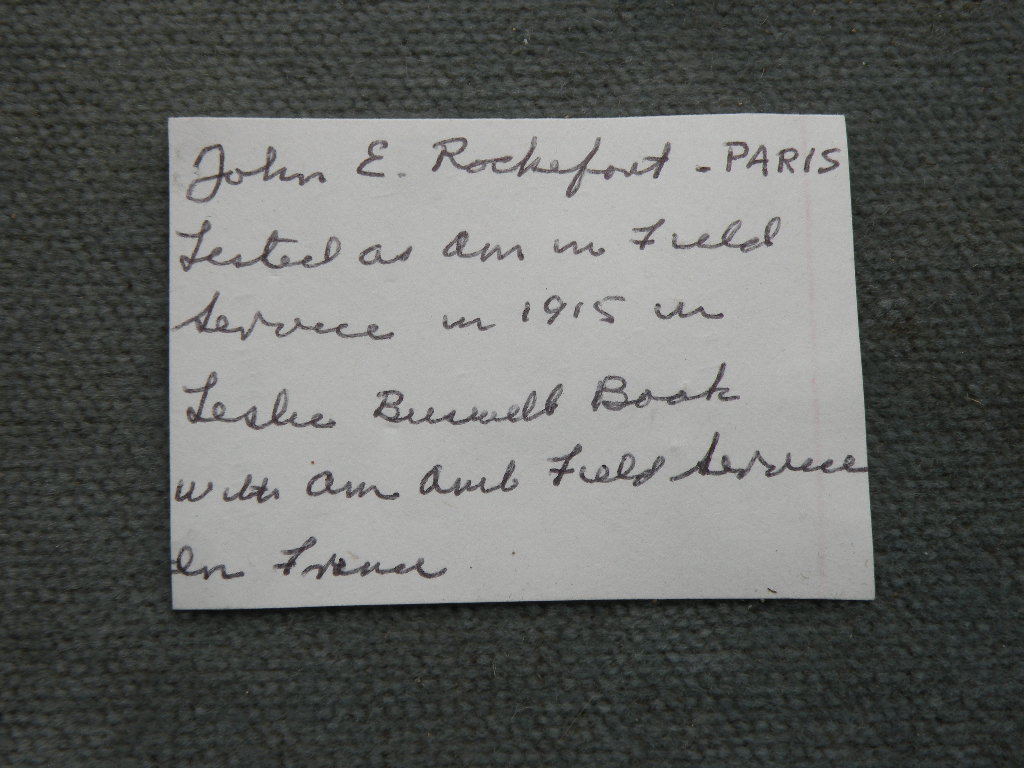 John E. Rockefort - PARIS
Listed as Am in Field
Service in 1915 in
Leslie Buswell Book
with Am Amb Field Service
in France